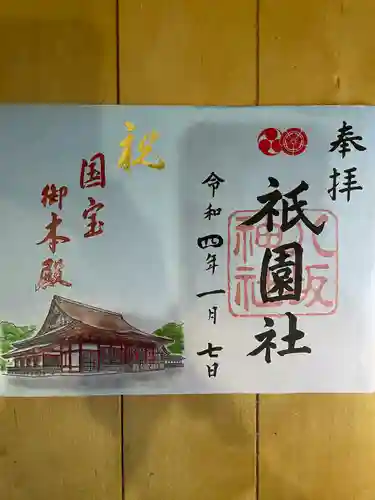 奉拝
祇園社
八坂神社
令和四年一月七日
祝
国宝
御本殿